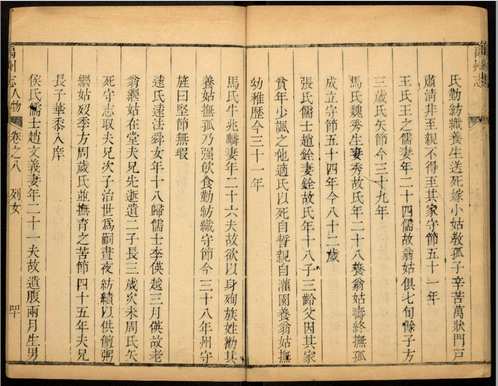 氏勤紡織養生送死嫁小姑敎孤子辛苦萬狀門戶
肅淸非至親不得至其家守節五十一年
王氏王之儒妻年二十四儒故翁姑俱七旬餘子方
三歲氏矢節今三十九年
馮氏魏秀生妻秀故氏年二十八葵翁姑壽終撫孤
成立守節五十四年今八十二歲
張氏儒士趙銓妻銓故氏年十八子三齡父因其家
貧年少諷之他適氏以死自誓親自灌園養翁姑撫
幼稚歷今三十一年
馬氏牛兆疇妻年二十六夫故欲以身殉族姓勸其
養姑撫孤乃强飮食勤紡織守節今三十八年州守
旌曰堅節無瑕
逯氏逯法舜女年十八歸儒士李偀越三月偀故老
翁煢姑在堂夫兄先逝遺二子長三歲次未周氏矢
死守志取夫兄次子治世爲嗣晝夜紡績以供饘粥
繼姑歿李方周歲氏並撫育之苦節四十五年夫兄
長子華黍入庠
侯氏儒士趙文義妻年二十一夫故遺腹兩月生男
州志人物
卷之八
列女